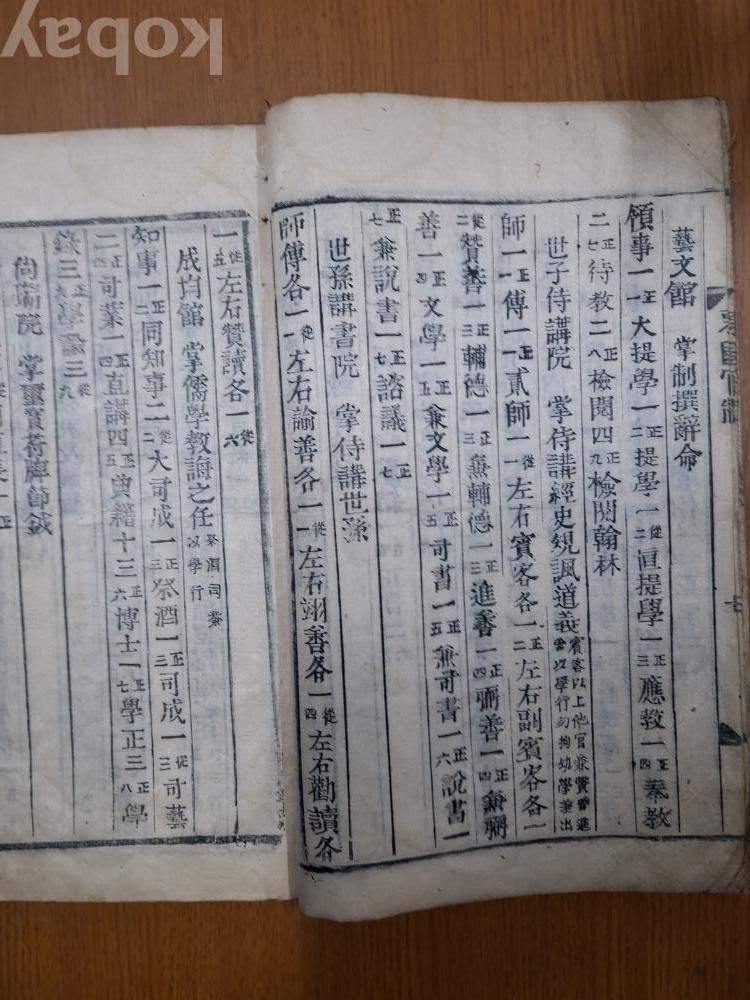 kobay
東國官制
七
藝文館 掌制撰辭命
領事一正一大提學一正二提學一從二直提學一正三應敎一正四奉敎
二正七待敎二正八檢閱四正九檢閱翰林
世子侍講院 掌侍講經史規諷道義賓客以上他官兼贊善進善以學行勿拘幼學兼出
師一正一傅一正一貳師一從一左右賓客各一正二左右副賓客各一
從二贊善一正三輔德一正三兼輔德一正三進善一正四弼善一正四兼弼
善一正四文學一正五兼文學一正五司書一正五兼司書一正六說書一
正七兼說書一正七諮議一正七
世孫講書院 掌侍講世孫
師傅各一從一左右諭善各一從二左右翊善各一從四左右勸讀各
一從五左右贊讀各一從六
成均館 掌儒學敎誨之任祭酒司業以學行
知事一正二同知事二從二大司成一正三祭酒一正三司成一從三司藝
二正四司業一正四直講四正五典籍十三正六博士一正七學正三正八學
錄三正九學諭三從九
尙瑞院 掌璽寶符牌節鉞